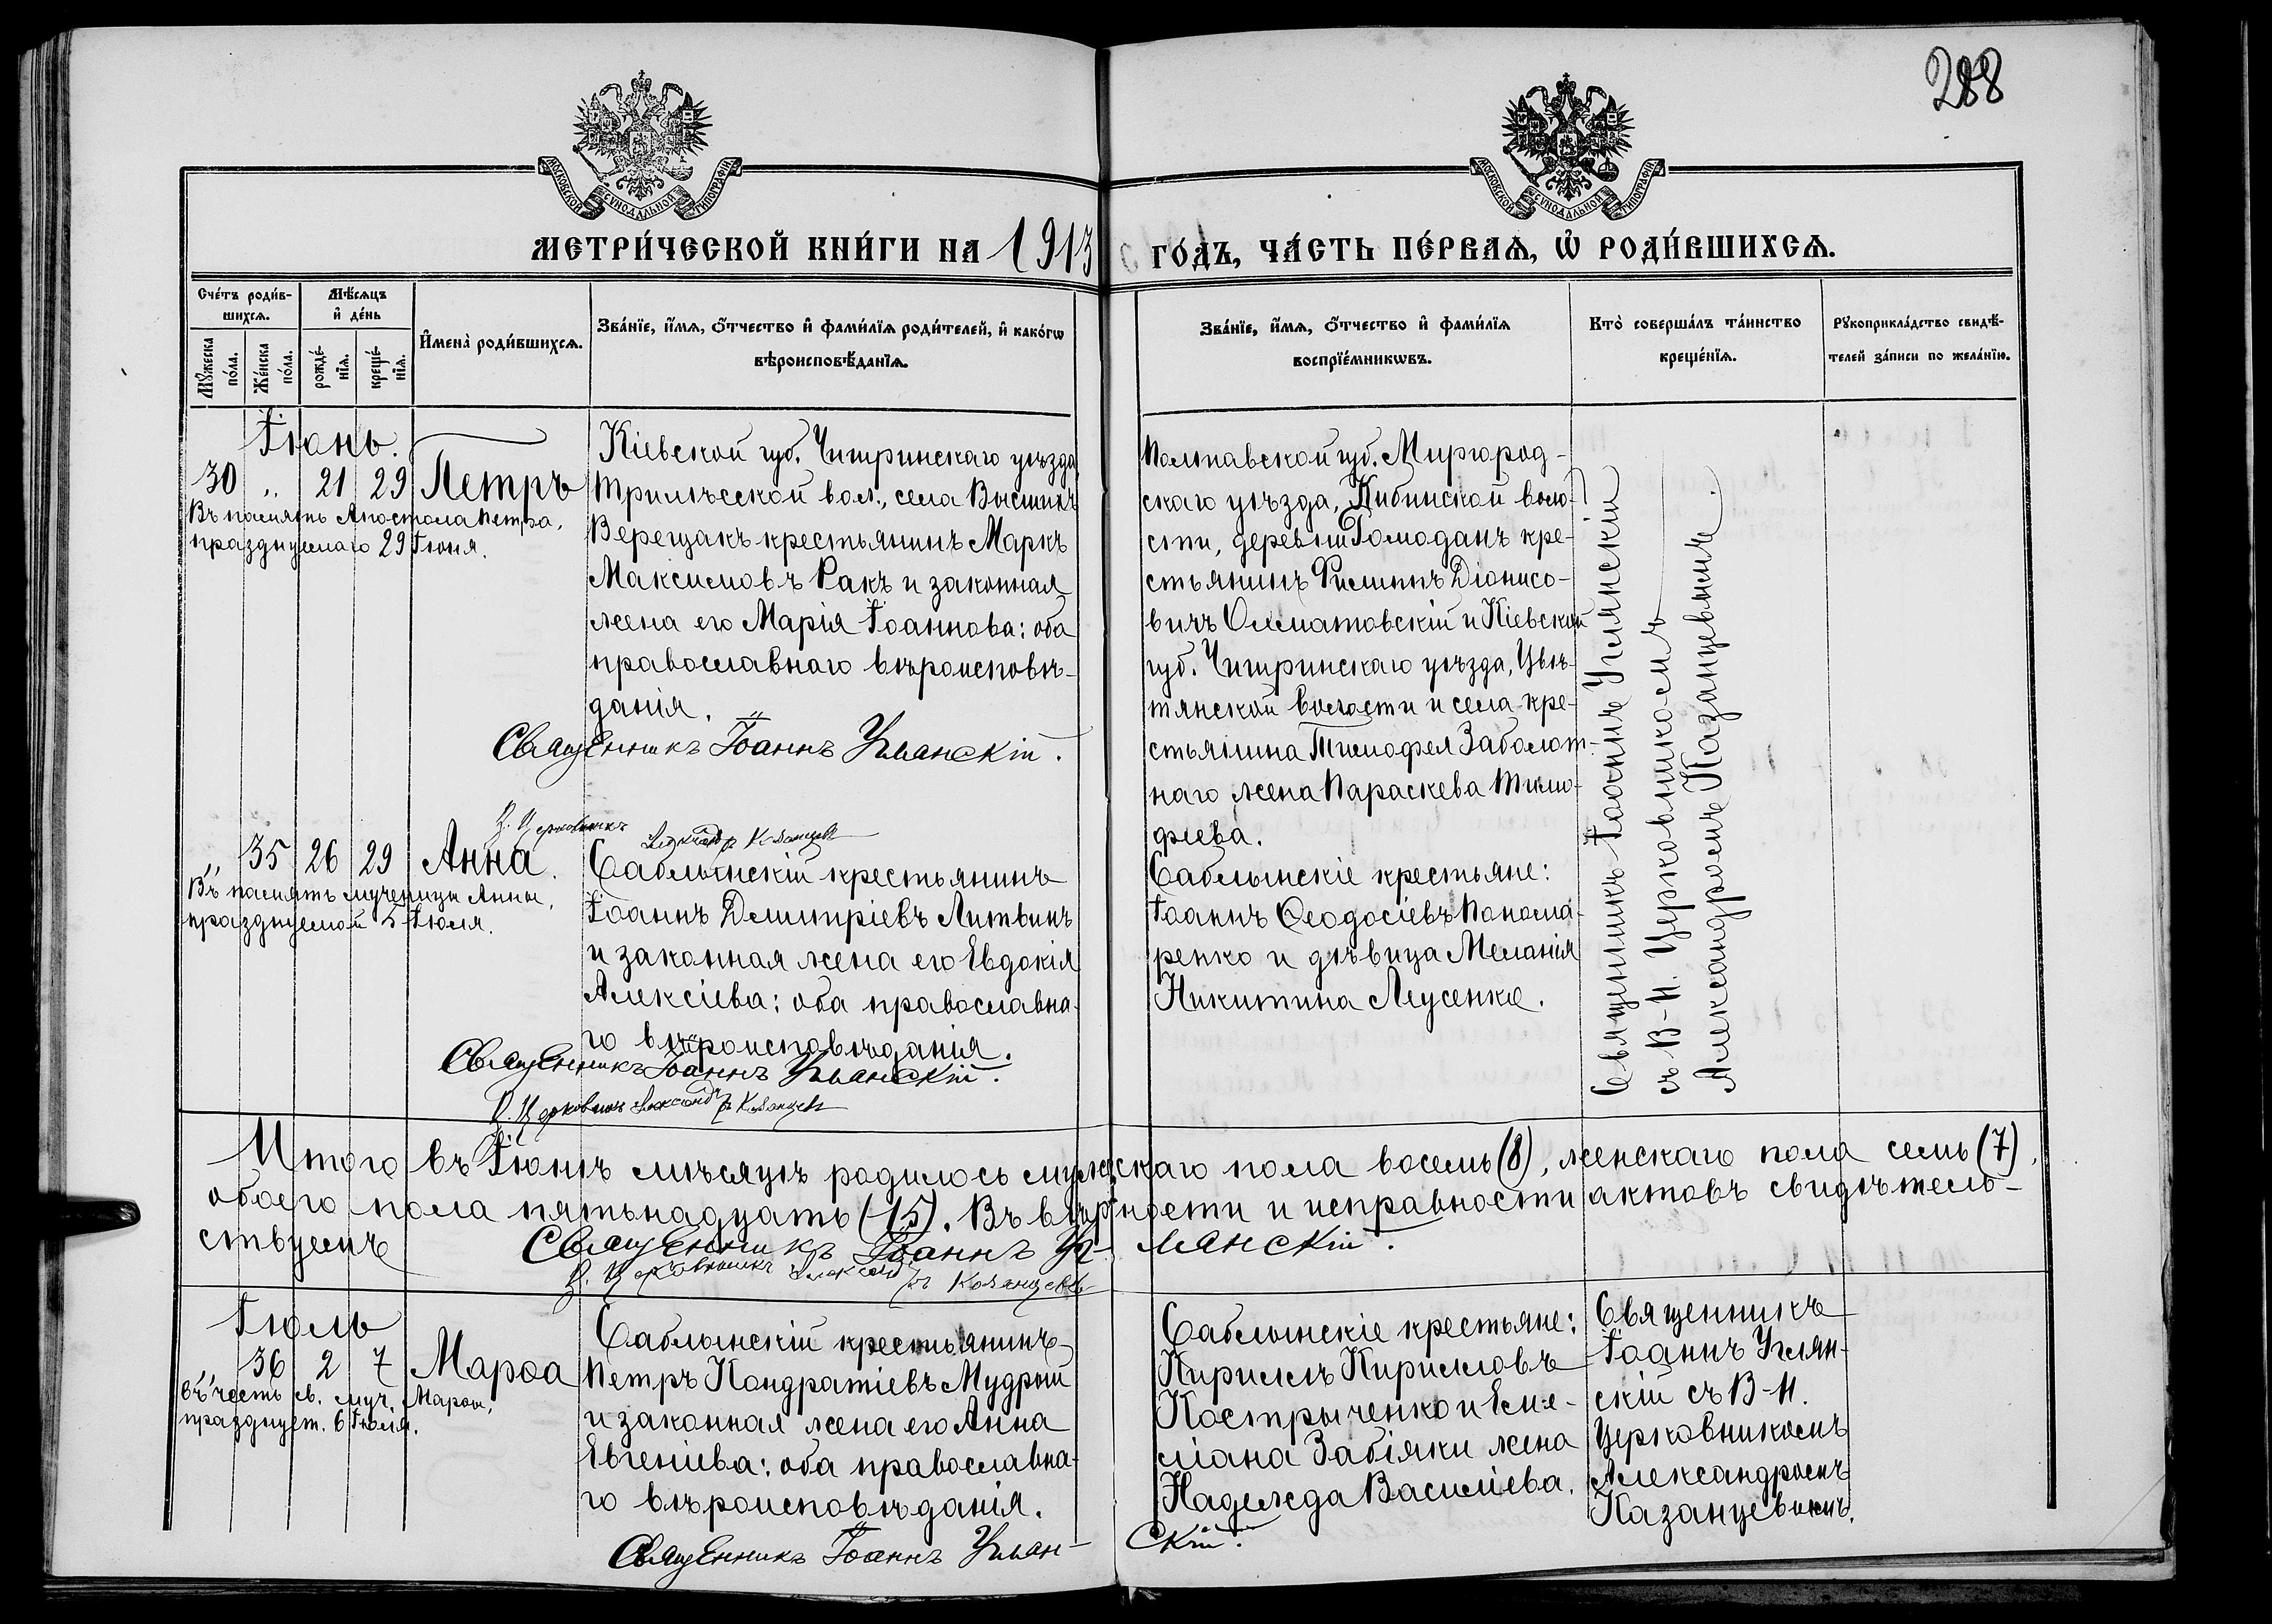 288
МОСКОВСКОЙ СѴНОДАЛЬНОЙ ТИПОГРАФІИ
МОСКОВСКОЙ СѴНОДАЛЬНОЙ ТИПОГРАФІИ
МЕТРИ́ЧЕСКОЙ КНИ́ГИ НА 1913 ГО́ДЪ, ЧА́СТЬ ПЕ́РВАѦ, Ѡ҆ РОДИ́ВШИХСѦ.
Сче́тъ роди́в-
шихсѧ.
Мꙋ́жеска
по́ла.
Же́нска
по́ла.
Мѣ́сѧцъ
и҆ де́нь
рожде́-
нїѧ.
креще́-
нїѧ.
И҆мена̀ роди́вшихсѧ.
Зва́нїе, и҆́мѧ, ѻ҆́тчество и҆ фами́лїѧ роди́телей, и҆ како́гѡ
вѣроисповѣ́данїѧ.
Зва́нїе, и҆́мѧ, ѻ҆́тчество и҆ фами́лїѧ
воспрїе́мникѡвъ.
Кто̀ соверша́лъ та́инство
креще́нїѧ.
Рꙋкоприкла́дство свидѣ́-
телей за́писи по жела́нїю.
Іюнь.
30 „ 21 29 Петръ
Въ память Апостола Петра,
празднуемаго 29 Іюня.
Кіевской губ. Чигринскаго уѣзда
Трилѣсской вол., села
Верещакъ крестьянинъ Маркъ
Максимовъ Ракъ и законная
жена его Марія Іоаннова: оба
православнаго вѣроисповѣ-
данія.
Священникъ Іоаннъ Углянскій.
В. И. Церковникъ
Александръ Казанцевъ
Полтавской губ. Миргород-
скаго уѣзда, Кибинской воло-
сти, деревни Гомоданъ кре-
стьянинъ Филиппъ Діонисо-
вичъ и Кіевской
губ. Чигринскаго уѣзда, Цвѣ-
тянской волости и села кре-
стьянина Тимофея Заболот-
наго жена Параскева Тимо-
феева.
Священникъ Іоаннъ Углянскій
съ В-И. Церковникомъ
Александромъ Казанцевымъ.
„ 35 26 29 Анна.
Въ память мученицы Анны,
празднуемой 5 Іюля.
Саблынскій крестьянинъ
Іоаннъ Димитріевъ Литвинъ
и законная жена его Евдокія
Алексіева: оба православна-
го вѣроисповѣданія.
Священникъ Іоаннъ Углянскій.
В. И. Церковникъ Александръ Казанцевъ
Саблынскіе крестьяне:
Іоаннъ Ѳеодосіевъ Понома-
ренко и дѣвица Меланія
Никитина Леусенко.
Итого въ Іюнѣ мѣсяцѣ родилось мужскаго пола восемь (8), женскаго пола семь (7),
обоего пола пятьнадцать (15). Въ вѣрности и исправности актовъ свидѣтель-
ствуемъ Священникъ Іоаннъ Углянскій.
В. И. Церковникъ Александръ Казанцевъ
Іюль
„ 36 2 7 Марѳа
въ честь св. муч. Марѳы,
празднует. 6 Іюля.
Саблынскій крестьянинъ
Петръ Кондратіевъ Мудрый
и законная жена его Анна
Евгеніева: оба православна-
го вѣроисповѣданія.
Священникъ Іоаннъ Углянскій.
Саблынскіе крестьяне:
Кириллъ Кирилловъ
Кострыченко и Еми-
ліана Забіяки жена
Надежда Василіева.
Священникъ
Іоаннъ Углян-
скій съ В-И.
Церковникомъ
Александромъ
Казанцевымъ.